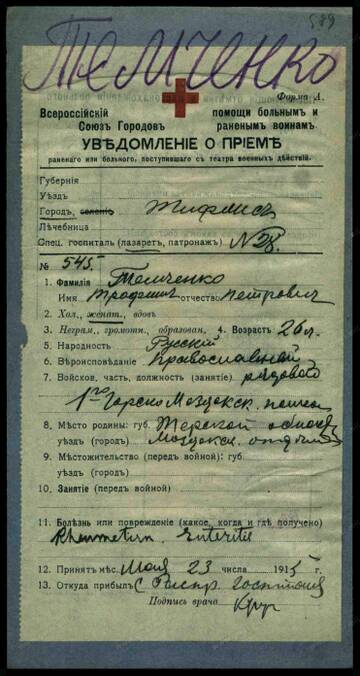 589
ТЕМЧЕНКО
Форма А.
Всероссійскій Союзъ Городовъ
помощи больнымъ и раненымъ воинамъ.
УВѢДОМЛЕНІЕ О ПРІЕМѢ
раненаго или больного, поступившаго съ театра военныхъ дѣйствій.
Губернія
Уѣздъ
Городъ, селеніе Тифлисъ
Лѣчебница
Спец. госпиталь (лазаретъ, патронажъ) №28.
№ 545
1. Фамилія Темченко
Имя Трофимъ отчество Петровичъ
2. Хол., женат., вдовъ
3. Неграм., грамотн., образован, 4. Возрастъ 26 л.
5. Народность Русскій
6. Вѣроисповѣданіе православный
7. Войсков. часть, должность (занятіе) рядовой
1го Горско Моздокск.
8. Мѣсто родины: губ. Терской област
уѣздъ (город) Моздокск. отд
9. Мѣстожительство (передъ войной): губ.
уѣздъ (город)
10. Занятіе (передъ войной)
11. Болѣзнь или поврежденіе (какое, когда и гдѣ получено)
Rheumatism. Enteritis
12. Принятъ мѣс. Мая 23 числа 1915
13. Откуда прибылъ С Распр. Госпиталя
Подпись врача